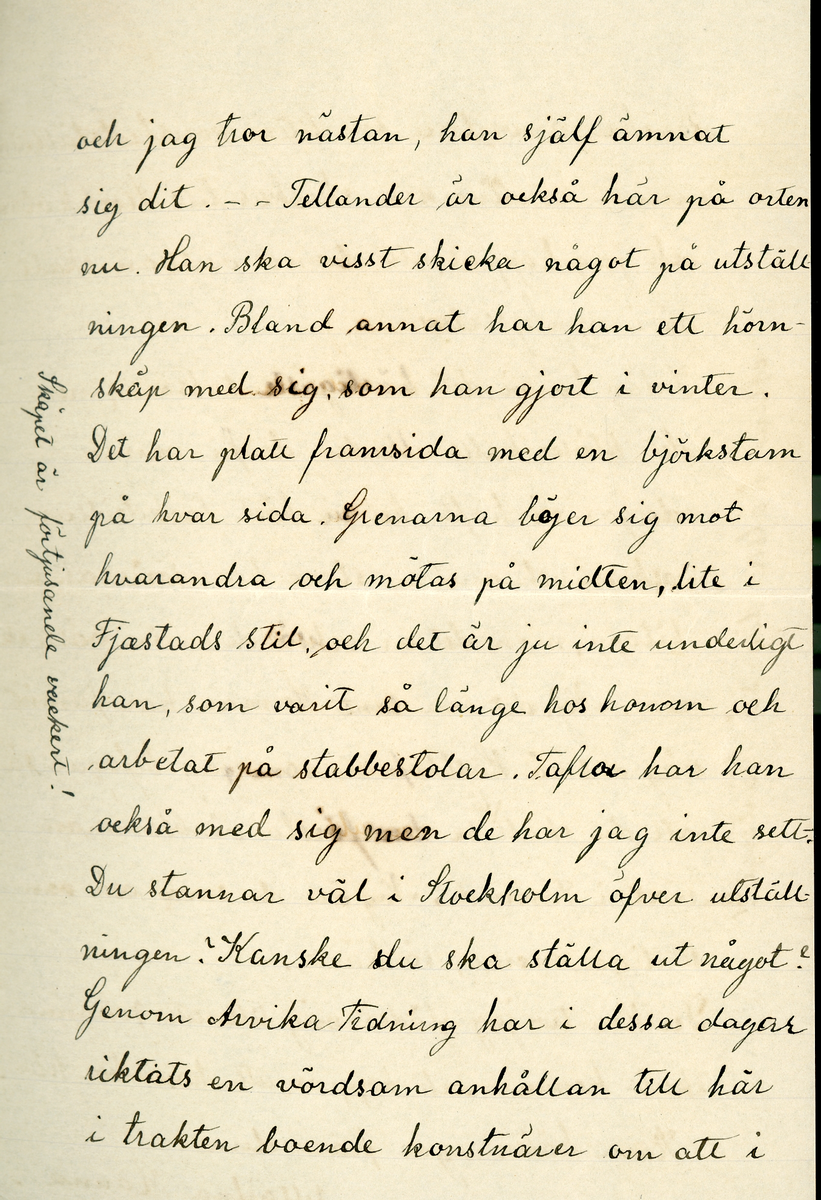 och jag tror nästan, han själf ämnat
sig dit. - - Tellander är också här på orten
nu. Han ska visst skicka något på utställ
ningen. Bland annat har han ett hörn-
skåp med sig, som han gjort i vinter.
Det har platt framsida med en björkstam
på hvar sida. Grenarna böjer sig mot
hvarandra och mötas på midten, lite i
Fjæstads stil, och det är ju inte underligt
han, som varit så länge hos honom och
arbetat på stabbestolar. Taflor har han
också med sig men de har jag inte sett.
Du stannar väl i Stockholm öfver utställ-
ningen? Kanske du ska ställa ut något?
Genom Arvika Tidning har i dessa dagar
riktats en vördsam anhållan till här
i trakten boende konstnärer om att i
Skåpet är förtjusande vackert!